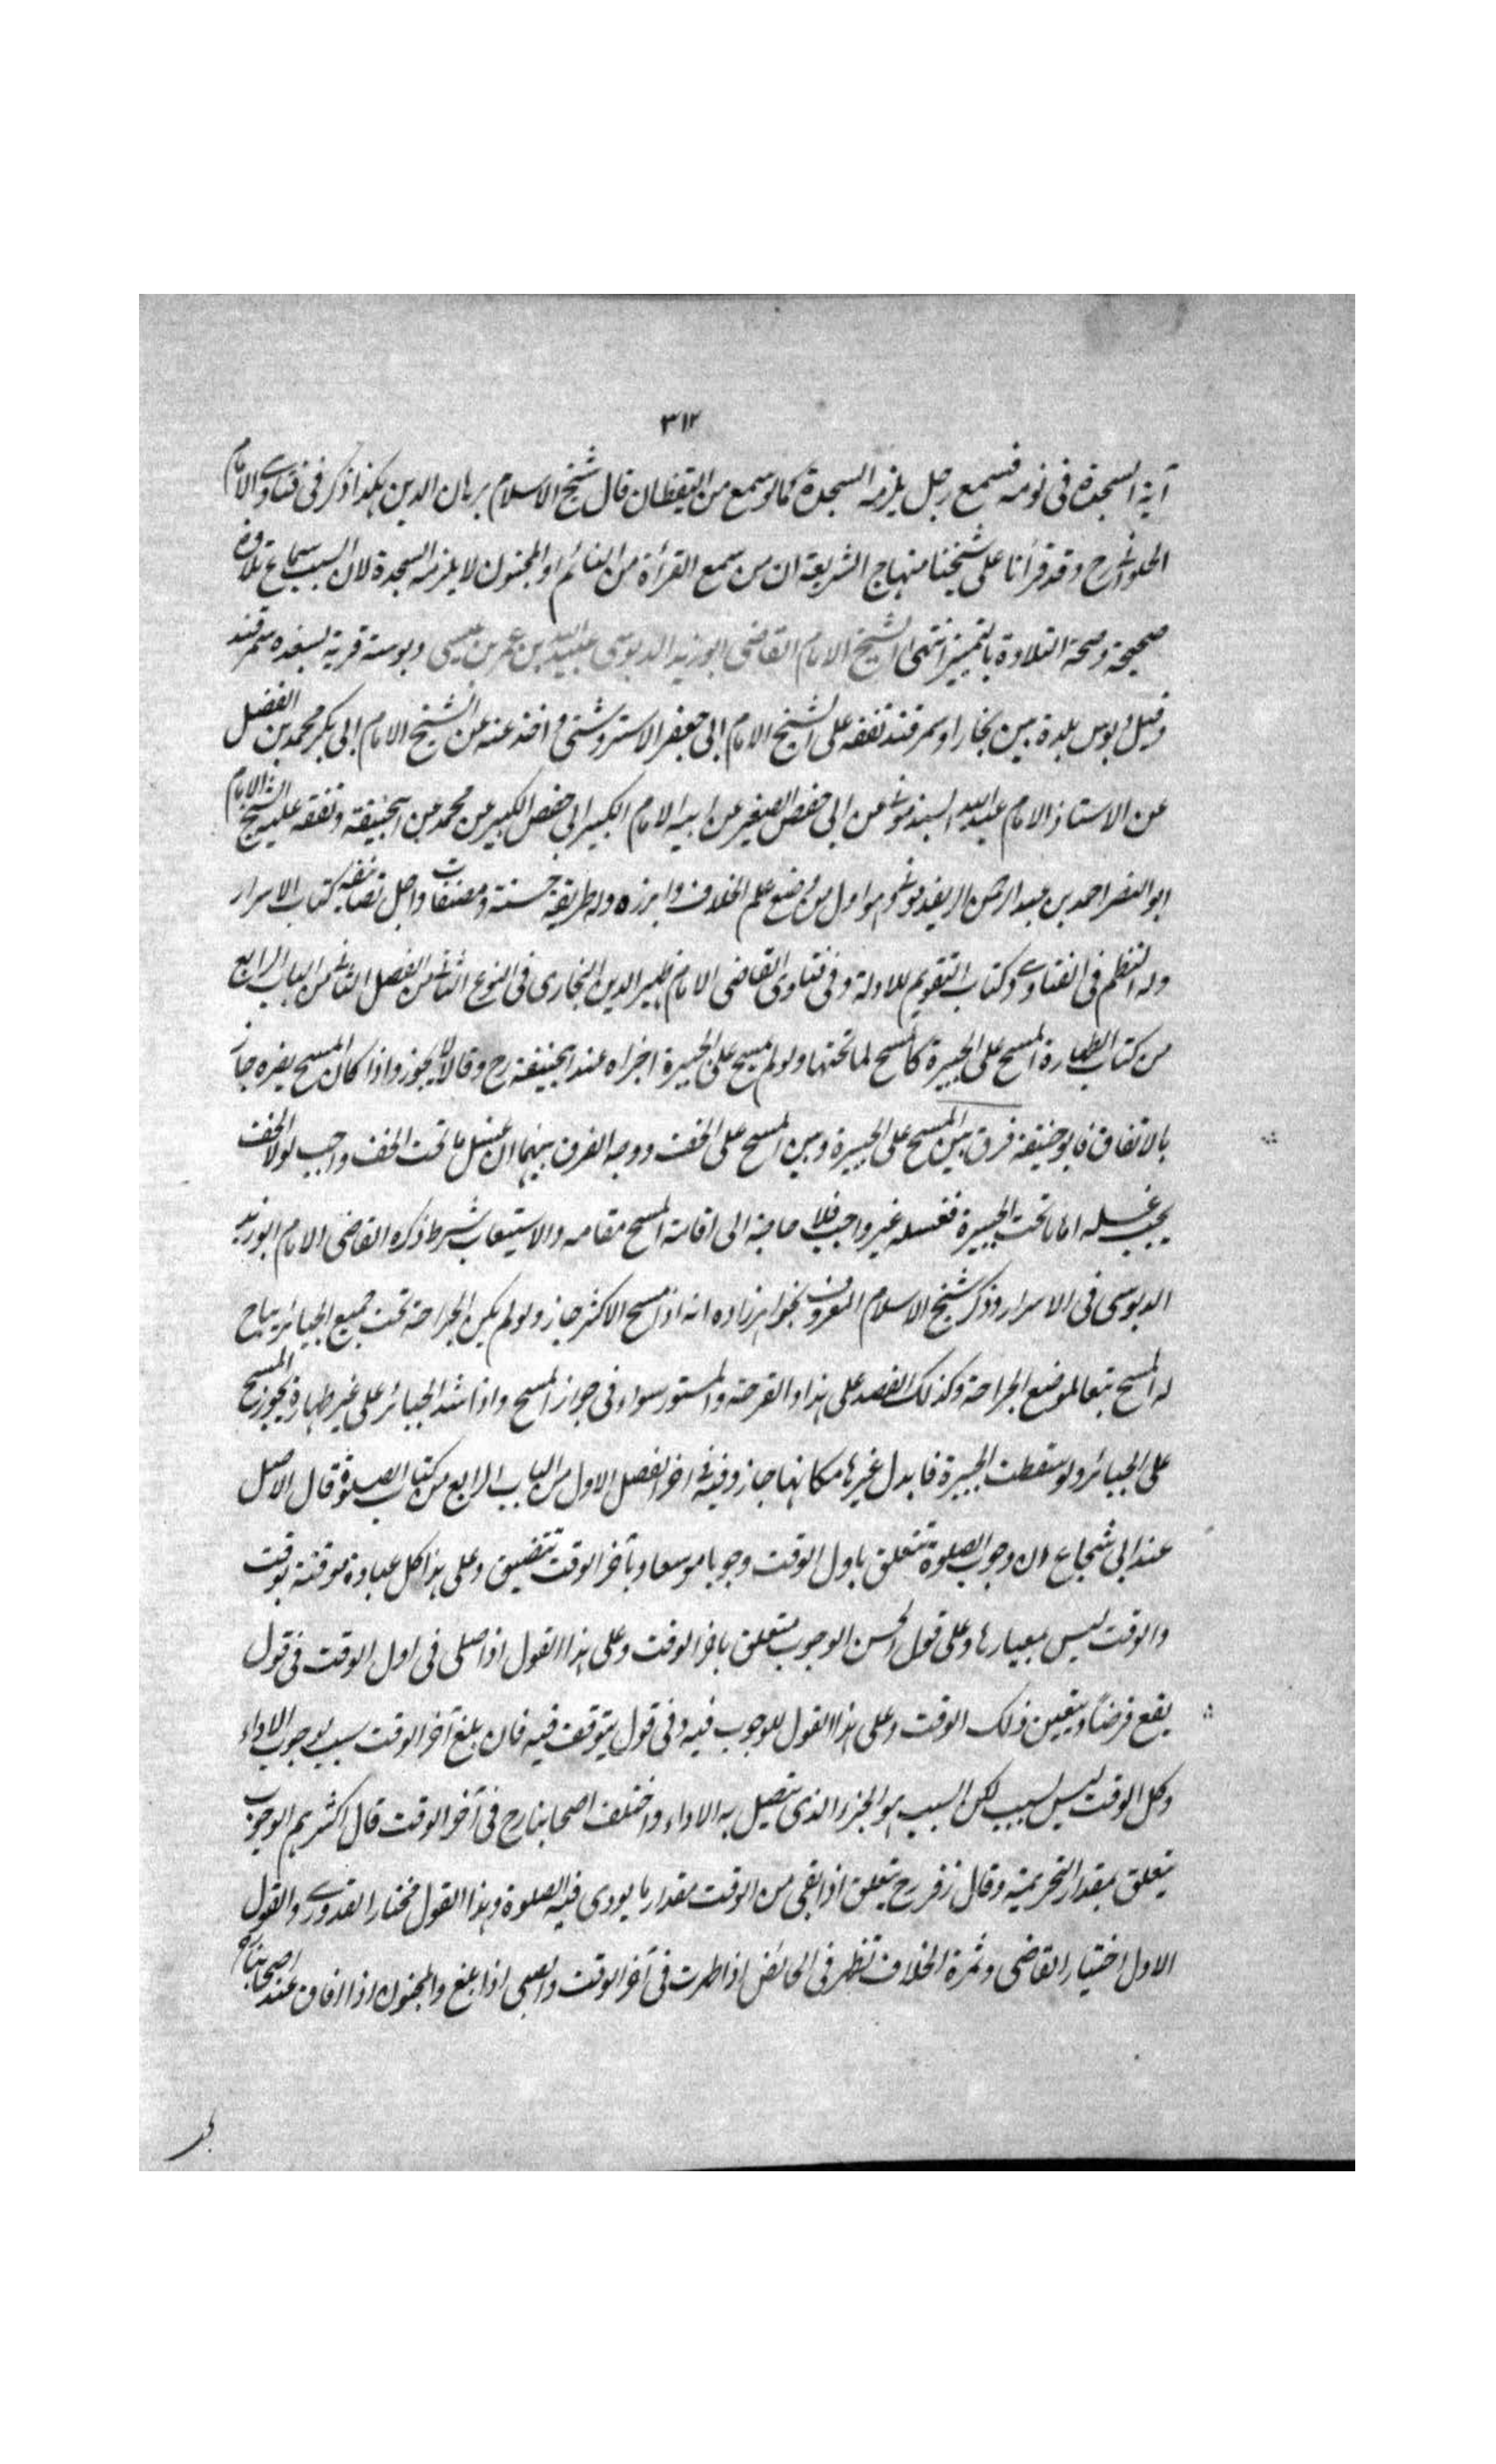 ٣١٢
آية السجدة فى نومه فسمع رجل يلزمه السجدة كما لو سمع من اليقظان قال شيخ الاسلام برهان الدين هكذا ذكر فى فتاوى الامام
الحلوانى رح وقد قرأنا على شيخنا منهاج الشريعة ان من سمع القرأة من النائم او المجنون لا يلزمه السجدة لان السبب سماع تلاوة
صحيحة وصحة التلاوة بالتميز انتهى الشيخ الامام القاضى ابو زيد الدبوسى عبيد الله بن عمر بن عيسى دبوسة قرية بسغد سمرقند
وقيل دبوس بلدة بين بخارا وسمرقند تفقه على الشيخ الامام ابى جعفر الاستروشنى واخذ عنه عن الشيخ الامام ابى بكر محمد بن الفضل
عن الاستاذ الامام عبد الله السبذمونى عن ابى حفص الصغير عن ابيه الامام الكبير ابى حفص الكبير عن محمد عن ابيحنيفة وتفقه عليه الشيخ الامام
ابو النصر احمد بن عبد الرحمن الريغدمونى هو اول من وضع علم الخلاف وابرزه وله طريقة حسنة ومصنفات واجل تصانيفه كتاب الاسرار
وله النظم فى الفتاوى وكتاب التقويم للادلة وفى فتاوى القاضى الامام ظهير الدين البخارى فى النوع الثانى من الفصل الثانى من الباب الرابع
من كتاب الطهارة المسح على الجبيرة كالمسح لما تحتها ولو لم يمسح على الجبيرة اجزاه عند ابيحنيفة رح وقالا لا يجوز واذا كان المسح يضره جاز
بالاتفاق فابو حنيفة فرق بين المسح على الجبيرة وبين المسح على الخف ووجه الفرق بينهما ان غسل ما تحت الخف واجب لولا الخف
يجب غسله اما ما تحت الجبيرة فغسله غير واجب فلا حاجة الى اقامة المسح مقامه والاستيعاب شرط ذكره القاضى الامام ابو زيد
الدبوسى فى الاسرار وذكر شيخ الاسلام المعروف بخواهرزاده انه اذا مسح الاكثر جاز ولو لم يكن الجراحة تحت جميع الجبائر يباح
له المسح تبعا لموضع الجراحة وكذلك الفصد على هذا والقرحة والمستور سواء فى جواز المسح واذا شد الجبائر على غير طهارة يجوز المسح
على الجبائر ولو سقطت الجبيرة فابدل غيرها مكانها جاز وفيه فى اخر الفصل الاول من الباب الرابع من كتاب الصلوة قال الاصل
عند ابى شجاع ان وجوب الصلوة تتعلق باول الوقت وجوبا موسعا وبآخر الوقت تتضيق وعلى هذا كل عبادة موقتة بوقت
والوقت ليس بمعيار لها وعلى قول الحسن الوجوب متعلق باخر الوقت وعلى هذا القول اذا صلى فى اول الوقت فى قول
يقع فرضاً ويتعين ذلك الوقت وعلى هذا القول للوجوب فيه وفى قول يتوقف فيه فان بلغ آخر الوقت سبب لوجوب الاداء
وكل الوقت ليس لسبب لكن السبب هو الجزء الذى يتصل به الاداء واختلف اصحابنا رح فى آخر الوقت قال اكثرهم الوجوب
يتعلق بمقدار التحريمة وقال زفر رح يتعلق اذا بقى من الوقت مقدار ما يودى فيه الصلوة وهذا القول مختار القدورى والقول
الاول اختيار القاضى وثمرة الخلاف تظهر فى الحائض اذا طهرت فى آخر الوقت والصبى اذا بلغ والمجنون اذا افاق عند اصحابنا